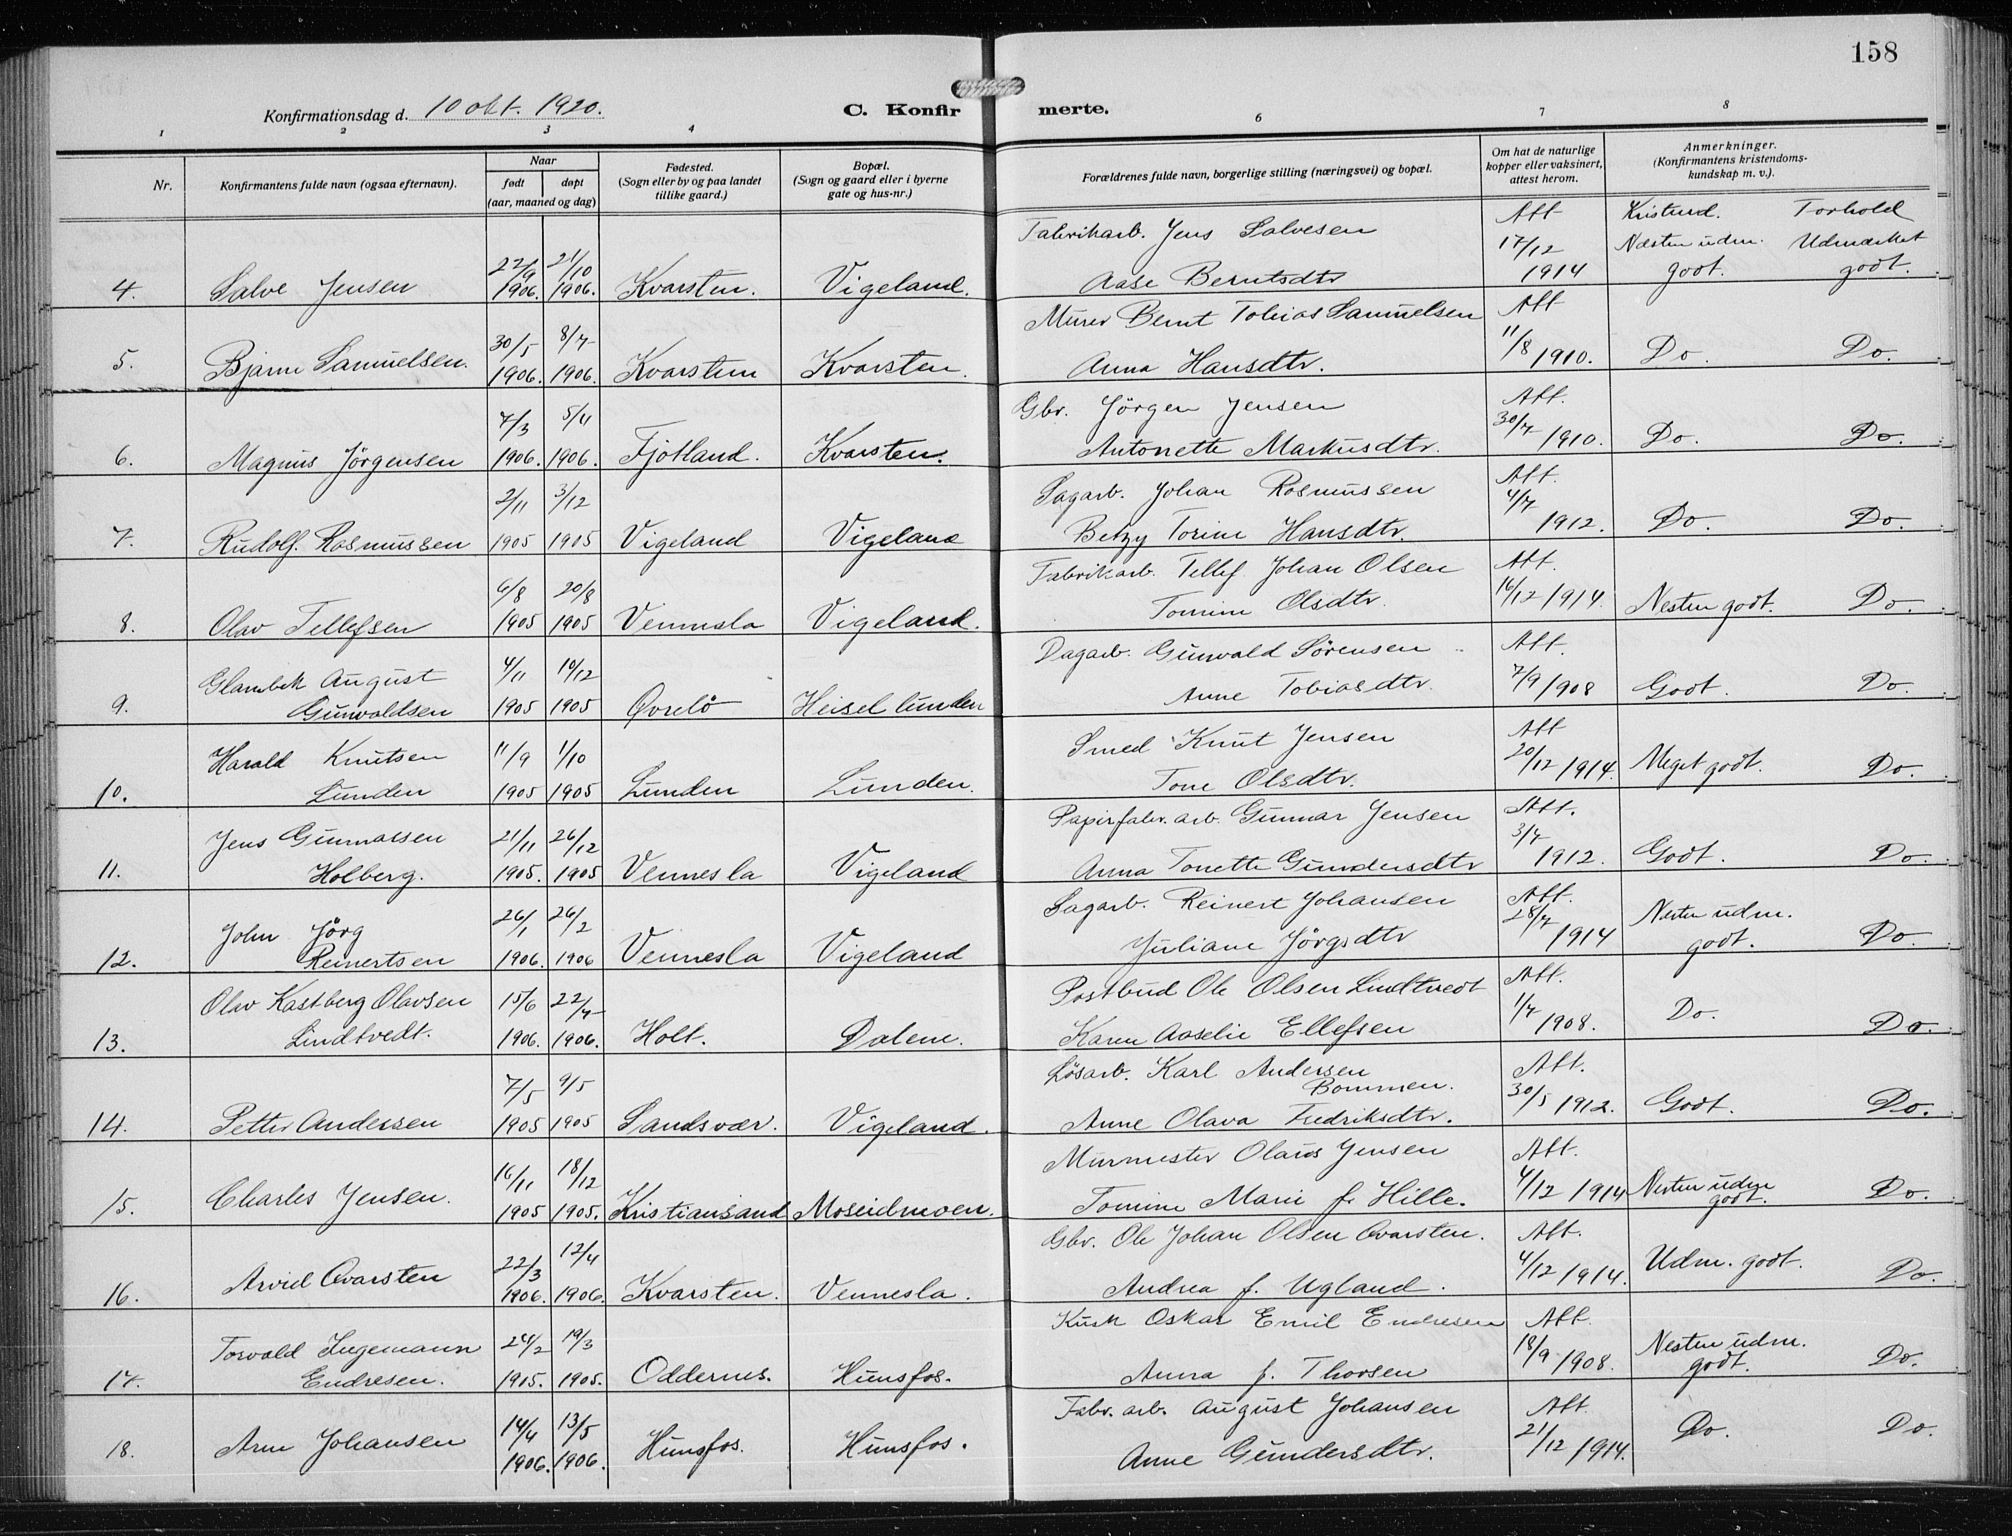 158
Konfirmationsdag d. 10 okt. 1920.
C. Konfirmerte.
1 2 3 4 6 7 8
Nr.
Konfirmantens fulde navn (ogsaa efternavn).
Naar
født døpt
(aar, maaned og dag)
Fødested.
(Sogn eller by og paa landet
tillike gaard.)
Bopæl.
(Sogn og gaard eller i byerne
gate og hus-nr.)
Forældrenes fulde navn, borgerlige stilling (næringsvei) og bopæl.
Om hat de naturlige
kopper eller vaksinert,
attest herom.
Anmerkninger.
(Konfirmantens kristendoms-
kundskap m. v.).
Kristend. Forhold
4. Salve Jensen 22/9 1906. 21/10 1906. Kvarsten. Vigeland. Fabrikarb. Jens Salvesen
Aase Berntsdtr Att 17/12 1914 Næsten udm. godt. Udmærket godt.
5. Bjarne Samuelsen. 30/5 1906. 8/7 1906. Kvarsten Kvarsten. Murer Bernt Tobias Samuelsen
Anna Hansdtr. Att 11/8 1910. Do. Do.
6. Magnus Jörgensen 7/3 1906. 5/11 1906. Fjotland. Kvarsten. Gbr. Jörgen Jensen
Antonette Markusdtr. Att. 30/7 1910. Do. Do.
7. Rudolf. Rasmussen 2/11 1905 3/12 1905 Vigeland Vigeland Sagarb. Johan Rasmussen
Betzy Torine Hansdtr. Att. 4/7 1912. Do. Do.
8. Olav Tellefsen 6/8 1905 20/8 1905 Vennesla Vigeland. Fabrikarb. Tellef Johan Olsen
Tomine Olsdtr. Att. 16/12 1914. Nesten godt. Do.
9. August
Gunvaldsen 4/11 1905 10/12 1905 Øvrebö Heisel lunden Dagarb. Gunvald Sörensen
Anne Tobiasdtr. Att. 7/9 1908 Godt. Do.
10. Harald Knutsen
Lunden 11/9 1905 1/10 1905 Lunden Lunden. Smed Knut Jensen
Tone Olsdtr. Att 20/12 1914. Meget godt. Do.
11. Jens Gunnarsen
Holberg. 21/11 1905. 26/12 1905 Vennesla Vigeland Papirfabr. arb. Gunnar Jensen
Anna Tonette Gundersdtr Att. 3/7 1912. Godt. Do.
12. John Jörg
Reinertsen 26/1 1906. 26/2 1906 Vennesla Vigeland Sagarb. Reinert Johansen
Juliane Jörgsdtr Att. 28/7 1914 Nesten udm. godt. Do.
13. Olav Kastberg Olavsen
Lindtvedt. 15/6 1906. 22/7 1906. Holt. Dalene. Postbud Ole Olsen Lindtvedt
Karen Aaselie Ellefsen Att. 1/7 1908. Do. Do.
14. Petter Andersen 7/5 1905 9/5 1905 Sandsvær. Vigeland. Lösarb. Karl Andersen
Bommen.
Anne Olava Fredriksdtr. Att. 30/5 1912. Godt. Do.
15. Charles Jensen. 16/11 1905 18/12 1905. Kristiansand Moseidmoen. Murmester Olaus Jensen
Tomine Marie f. Hille. Att. 4/12 1914 Nesten udm godt. Do.
16. Arvid Qvarsten 22/3 1906. 12/4 1906. Kvarsten. Vennesla. Gbr. Ole Johan Olsen Qvarsten.
Andrea f. Ugland. Att. 4/12 1914. Udm. godt. Do.
17. Torvald Ingemann
Endresen. 24/2 1905. 19/3 1905. Oddernes. Hunsfos. Kusk Oskar Emil Endresen
Anna f. Thorsen Att. 18/9 1908. Nesten udm. godt. Do.
18. Arne Johansen 14/4 1906. 13/5 1906. Hunsfos. Hunsfos. Fabr. arb. August Johansen
Anne Gundersdtr. Att. 21/12 1914. Do. Do.